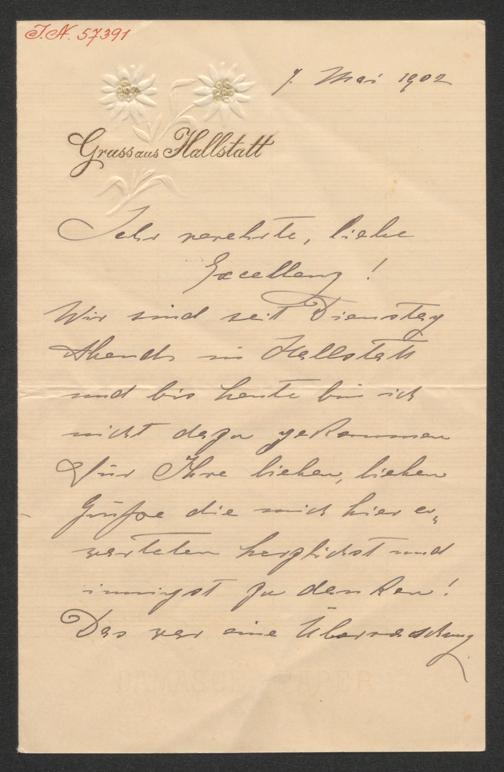 J.N. 57391
7. Mai 1902
Gruss aus Hallstatt
Sehr verehrte, liebe
Excellenz!
Wir sind seit Dienstag
Abends in Hallstatt
und bis heute bin ich
nicht dazu gekommen
für Ihre lieben, lieben
Grüße die mich hier er-
warteten herzlichst und
innigst zu danken!
Das war eine Überraschung
DAMASCUS PAPER